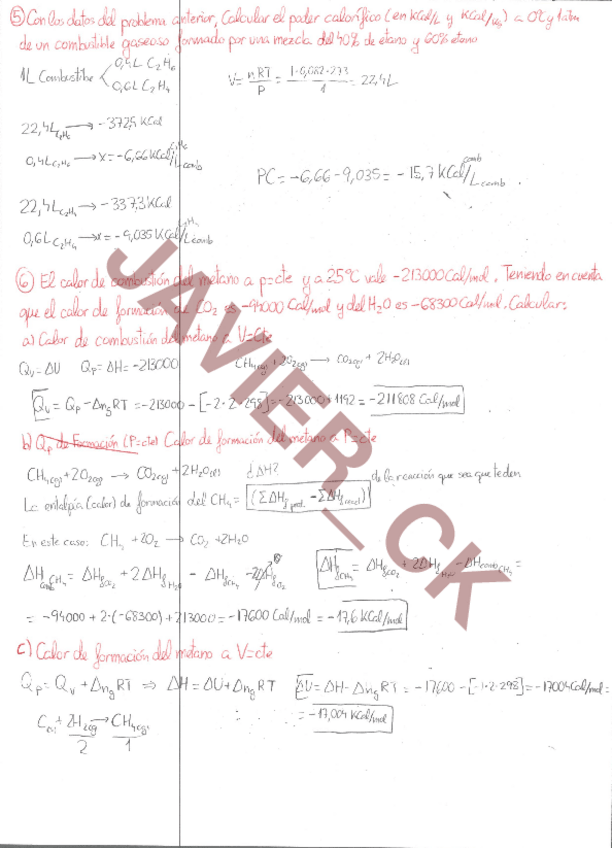 ⑤ Con los datos del problema anterior, Calcular el poder calorífico (en KCal/L y KCal/Kg) a 0°C y 1 atm
de un combustible gaseoso formado por una mezcla del 40% de etano y 60% eteno
1L Combustible < 0,4L C2H6
0,6L C2H4
V = nRT/P = 1·0,082·273/1 = 22,4L
22,4L C2H6 → -372,9 KCal
0,4L C2H6 → x = -6,66 KCal/L comb
PC = -6,66 - 9,035 = -15,7 KCal/L comb.
22,4L C2H4 → -337,3 KCal
0,6L C2H4 → x = -9,035 KCal/L comb
⑥ El calor de combustión del metano a p=cte y a 25°C vale -213000 Cal/mol. Teniendo en cuenta
que el calor de formación de CO2 es -94000 Cal/mol y del H2O es -68300 Cal/mol. Calcular:
a) Calor de combustión del metano a V=Cte
Qv = ΔU Qp = ΔH = -213000 CH4(g) + 2O2(g) → CO2(g) + 2H2O(l)
Qv = Qp - ΔngRT = -213000 - [-2·2·298] = -213000 + 1192 = -211808 Cal/mol
b) Qp de Formación (P=cte) Calor de formación del metano a P=cte
CH4(g) + 2O2(g) → CO2(g) + 2H2O(l) ¿ΔH?
La entalpía (calor) de formación del CH4 = (ΣΔHf prod. - ΣΔHf react) de la reacción que sea que te den
En este caso: CH4 + 2O2 → CO2 + 2H2O
ΔHcomb CH4 = ΔHf CO2 + 2ΔHf H2O - ΔHf CH4 - 2ΔHf O2 ΔHf CH4 = ΔHf CO2 + 2ΔHf H2O - ΔHcomb CH4 =
= -94000 + 2·(-68300) + 213000 = -17600 Cal/mol = -17,6 KCal/mol
c) Calor de formación del metano a V=cte
Qp = Qv + ΔngRT ⇒ ΔH = ΔU + ΔngRT ΔU = ΔH - ΔngRT = -17600 - [-1·2·298] = -17004 Cal/mol =
= -17,004 KCal/mol
C(s) + 2H2(g) → CH4(g)
2 1
JAVIER_CK